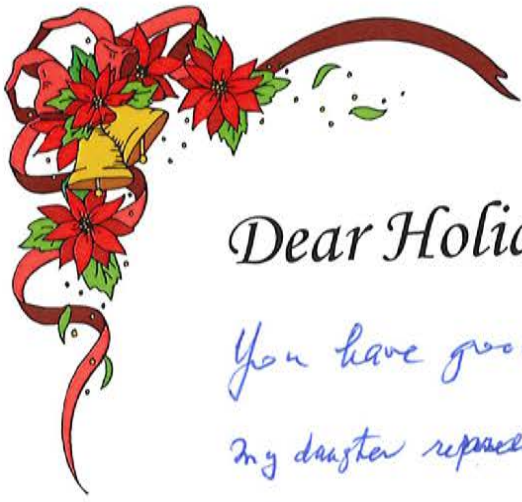 Dear Holid
You have goo
my daugter